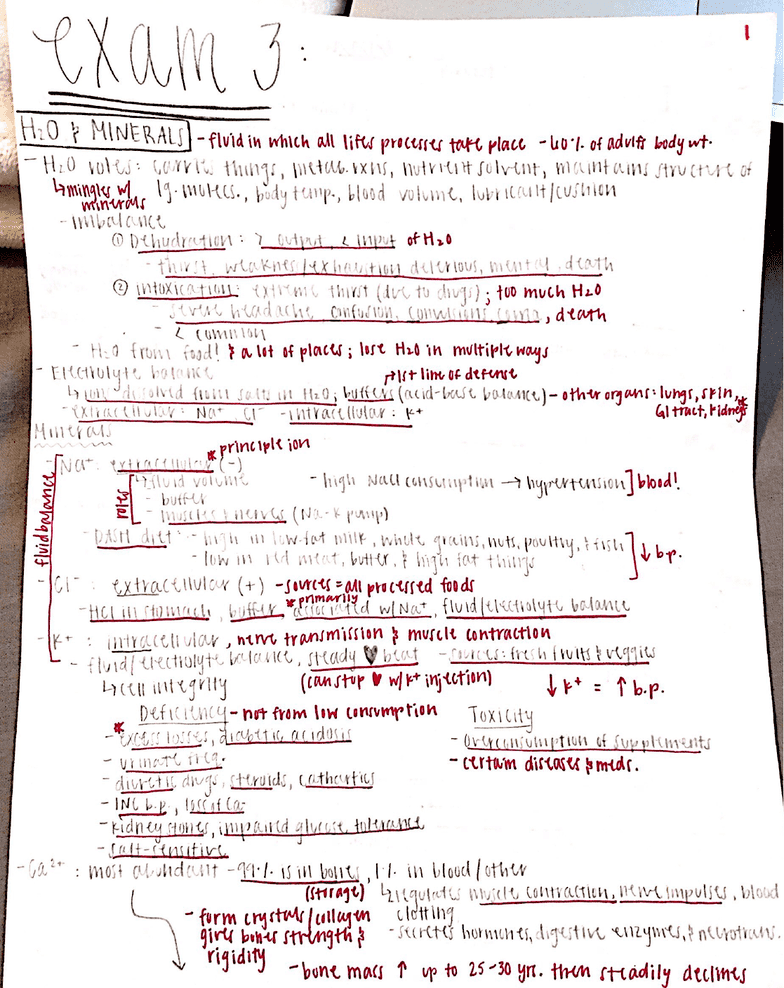 1
exam 3:
H₂O & MINERALS - fluid in which all lifes processes take place - 60% of adults body wt.
- H₂O roles: carries things, metab. rxns, nutrient solvent, maintains structure of
↳ mingles w/ minerals lg. molecs., body temp., blood volume, lubricant/cushion
- imbalance
① Dehydration: > output, < input of H₂O
- thirst, weaknes/exhaustion, delerious, mental, death
② intoxication: extreme thirst (due to drugs); too much H₂O
- severe headache, confusion, convulsions, coma, death
- < common
- H₂O from food! & a lot of places; lose H₂O in multiple ways
- Electrolyte balance → 1st line of defense
↳ ions dissolved from salts in H₂O; buffers (acid-base balance) - other organs: lungs, skin,
- extracellular: Na⁺, Cl⁻ - intracellular: K⁺ GI tract, kidneys *
Minerals
* principle ion
- Na⁺: extracellular (-)
↳ fluid volume - high NaCl consumption → hypertension] blood!
- buffer
- muscles & nerves (Na-K pump)
roles
fluid balance
- DASH diet: - high in low-fat milk, whole grains, nuts, poultry, & fish
- low in red meat, butter, & high fat things ↓ b.p.
- Cl⁻: extracellular (+) - sources = all processed foods
* primarily
- HCl in stomach, buffer, associated w/ Na⁺, fluid/electrolyte balance
- K⁺: intracellular, nerve transmission & muscle contraction
- fluid/electrolyte balance, steady ♥ beat - sources: fresh fruits & veggies
↳ cell integrity (can stop ♥ w/ K⁺ injection) ↓ K⁺ = ↑ b.p.
Deficiency - not from low consumption
* - excess losses, diabetic acidosis
- urinate freq.
- diuretic drugs, steroids, cathartics
- INC b.p., loss of Ca
- kidney stones, impaired glucose tolerance
- salt-sensitive
Toxicity
- overconsumption of supplements
- certain diseases & meds.
- Ca²⁺: most abundant - 99% is in bones, 1% in blood/other
(storage) ↳ regulates muscle contraction, nerve impulses, blood
clotting
- form crystals/collagen
gives bones strength &
rigidity
- secretes hormones, digestive enzymes, & neurotrans.
- bone mass ↑ up to 25-30 yrs. then steadily declines